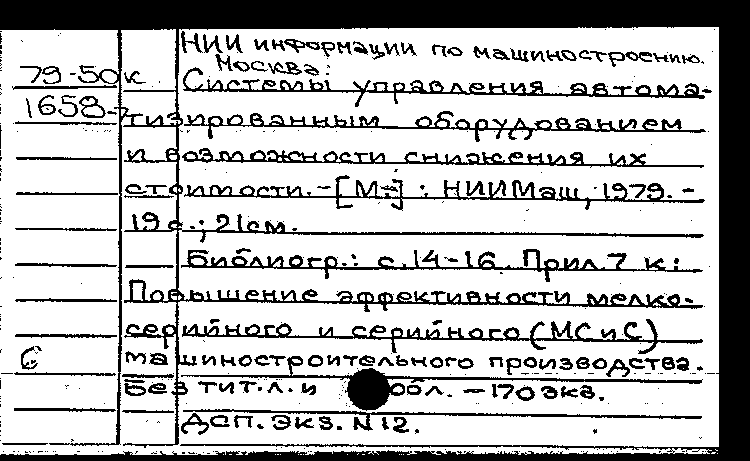 НИИ информации по машиностроению.
Москва.
79-50 к Системы управления автома-
1658-7 тизированным оборудованием
и возможности снижения их
стоимости. - [М.] : НИИМаш, 1979. -
19 с.; 21 см.
Библиогр.: с. 14-16. Прил. 7 к:
Повышение эффективности мелко-
серийного и серийного (МС и С)
б машиностроительного производства.
Без тит. л. и обл. - 170 экз.
Доп. экз. N 12.